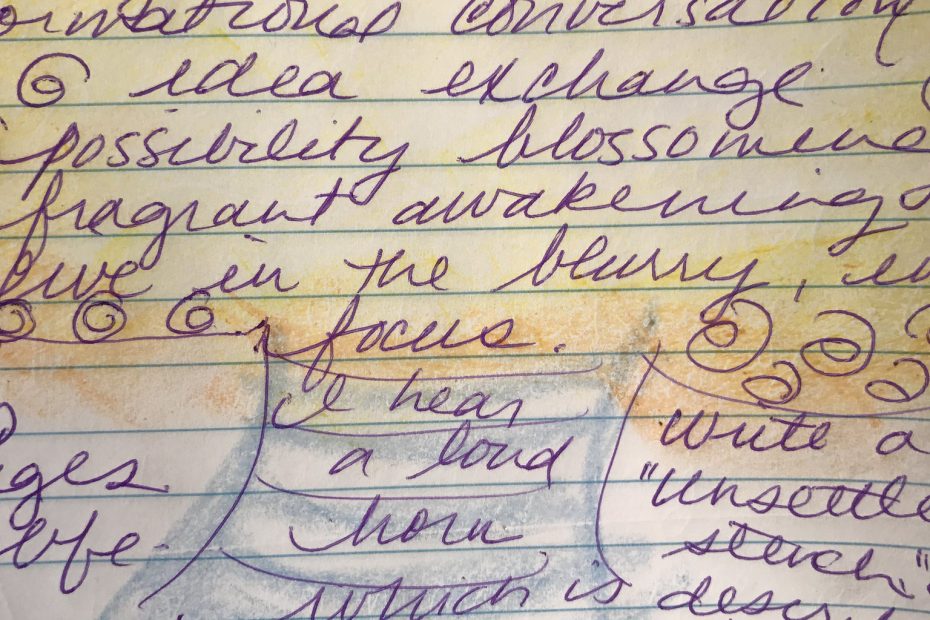 ormational conversation
idea exchange
possibility blossomin
fragrant awakening
live in the blurry, in
focus.
ges
life
I hear
a loud
horn
which is
Write a
"Unsettle
stench."
descr